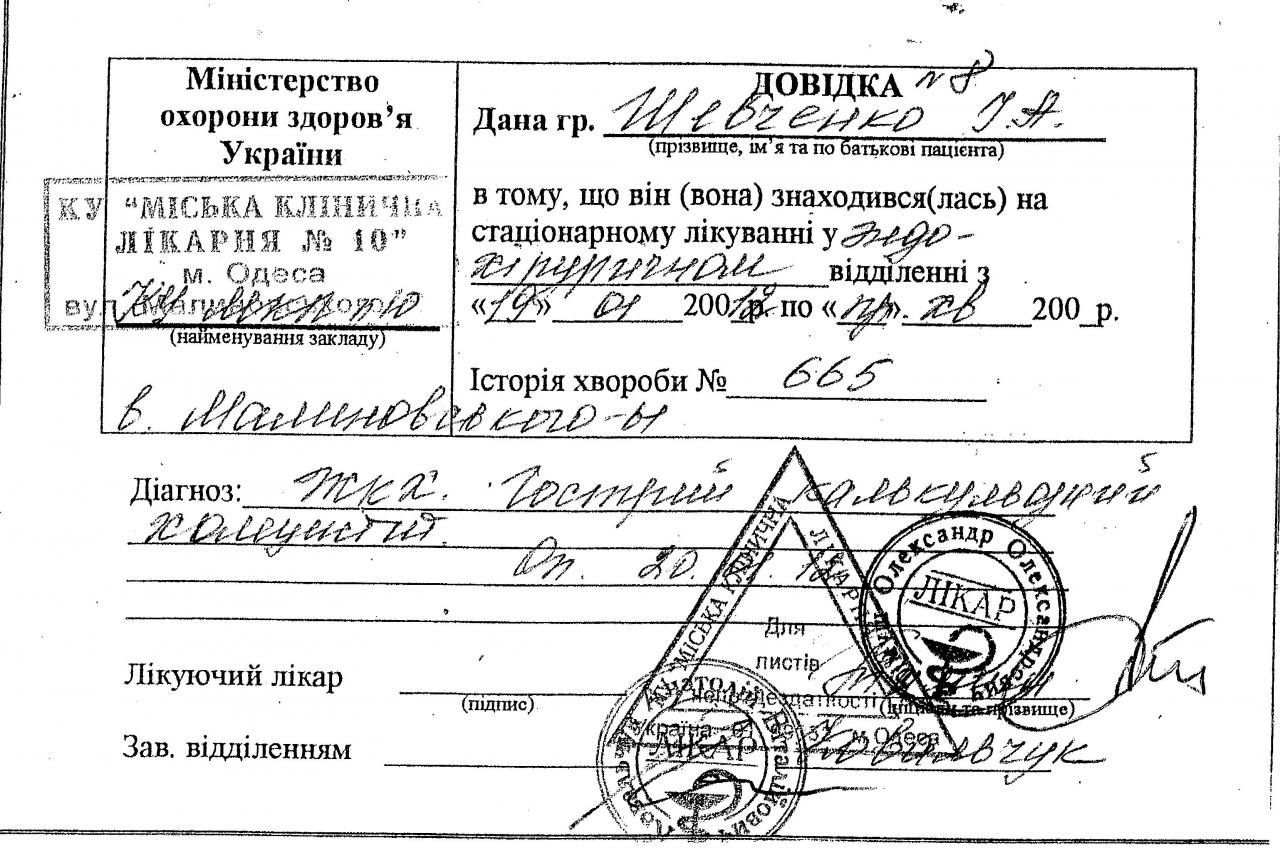 Міністерство
охорони здоров’я
України
КУ "МІСЬКА КЛІНИЧНА
ЛІКАРНЯ № 10"
м. Одеса
вул. Малиновського
(найменування закладу)
в. Малиновського-ы
ДОВІДКА № 8
Дана гр. Шевченко І.А.
(прізвище, ім’я та по батькові пацієнта)
в тому, що він (вона) знаходився(лась) на
стаціонарному лікуванні у эндо-
хірургичном відділенні з
«19» 01 200 р. по « пр. хв 200_р.
Історія хвороби № 665
Діагноз: ЖКХ. Гострий калькульозний
холецистит.
Оп. 20.
Лікуючий лікар
(підпис)
(ініціали та прізвище)
Зав. відділенням Ковальчук
МІСЬКА КЛІНИЧНА ЛІКАРНЯ
Для
листів
непрацездатності
Україна м. Одеса
Олександр Олександрович
ЛІКАР
Анатолій Віталійович
ЛІКАР